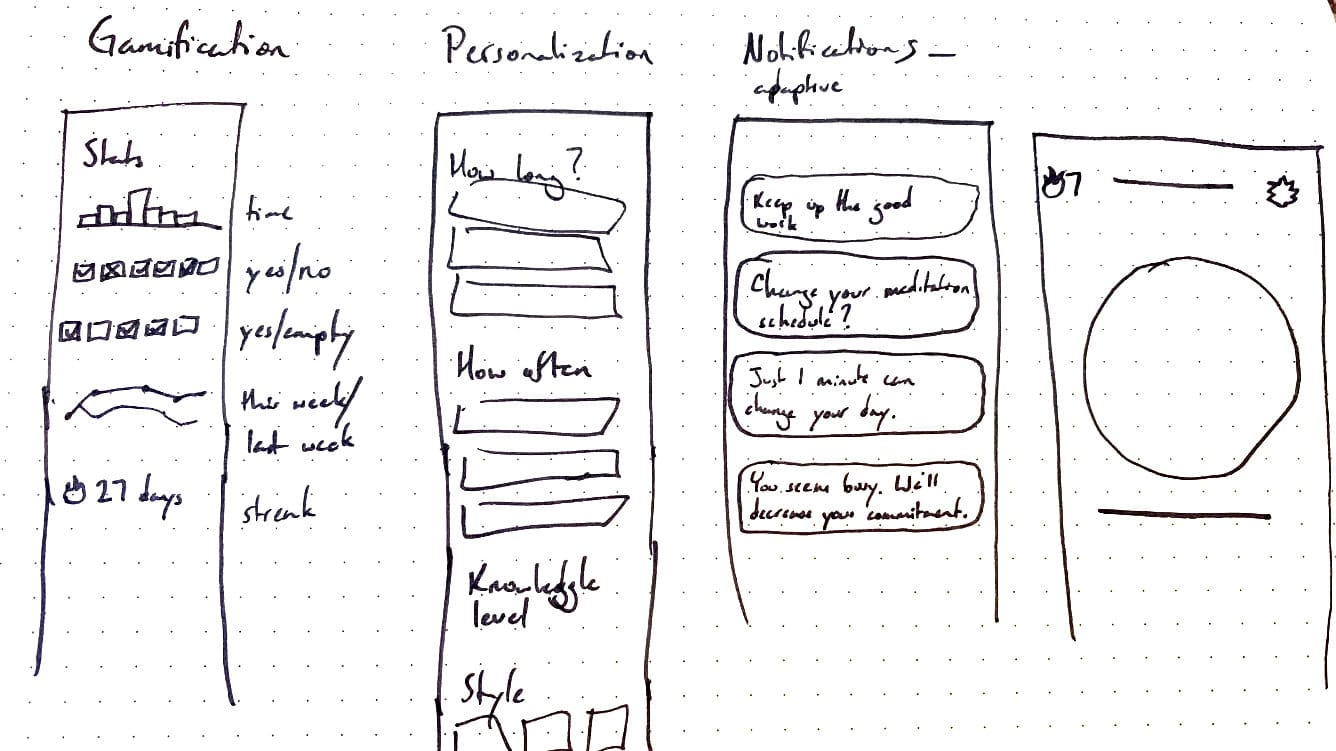 Gamification
Stats
time
yes/no
yes/empty
this week/
last week
27 days
streak
Personalization
How long?
How often
Knowledgle
level
Style
Notifications –
adaptive
Keep up the good
work
Change your meditation
schedule?
Just 1 minute can
change your day.
You seem busy. We'll
decrease your commitment.
7